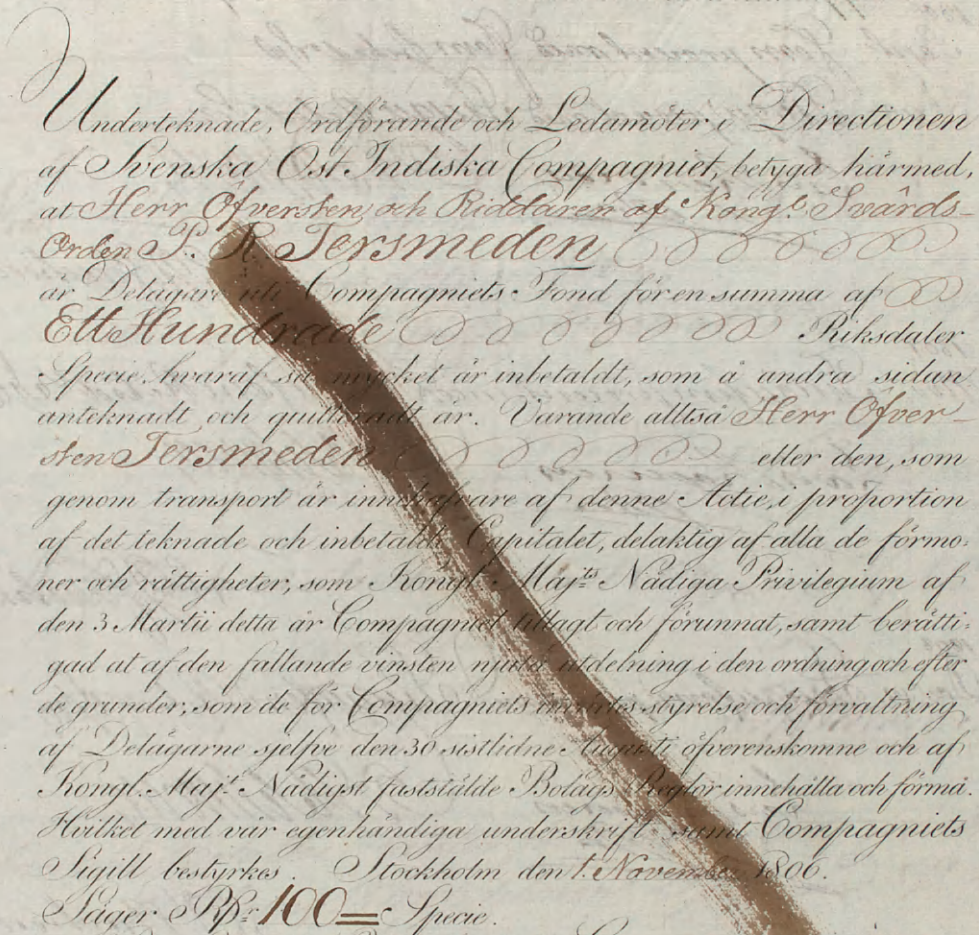 Underteknade, Ordförande och Ledamöter i Directionen
af Svenska Ost Indiska Compagniet, betyga härmed,
at Herr Öfversten och Riddaren af Kongl. Svärds-
Orden P. R. Tersmeden
är Delägare uti Compagniets Fond för en summa af
Ett Hundrade Riksdaler
Specie, hvaraf så mycket är inbetaldt, som å andra sidan
anteknadt och quitteradt är. Varande alltså Herr Öfver-
sten Tersmeden eller den, som
genom transport är innehafvare af denne Actie, i proportion
af det teknade och inbetalte Capitalet, delaktig af alla de förmo-
ner och rättigheter, som Kongl. Maj:ts Nådiga Privilegium af
den 3 Martii detta år Compagniet tillagt och förunnat, samt berätti-
gad at af den fallande vinsten njuta utdelning i den ordning och efter
de grunder, som de för Compagniets styrelse och förvaltning
af Delägarne sjelfve den 30 sistlidne Augusti öfverenskomne och af
Kongl. Maj:t Nådigst faststälde Bolags Reglor innehålla och förmå.
Hvilket med vår egenhändiga underskrift samt Compagniets
Sigill bestyrkes. Stockholm den 1. November 1806.
Säger Rdr 100 = Specie.